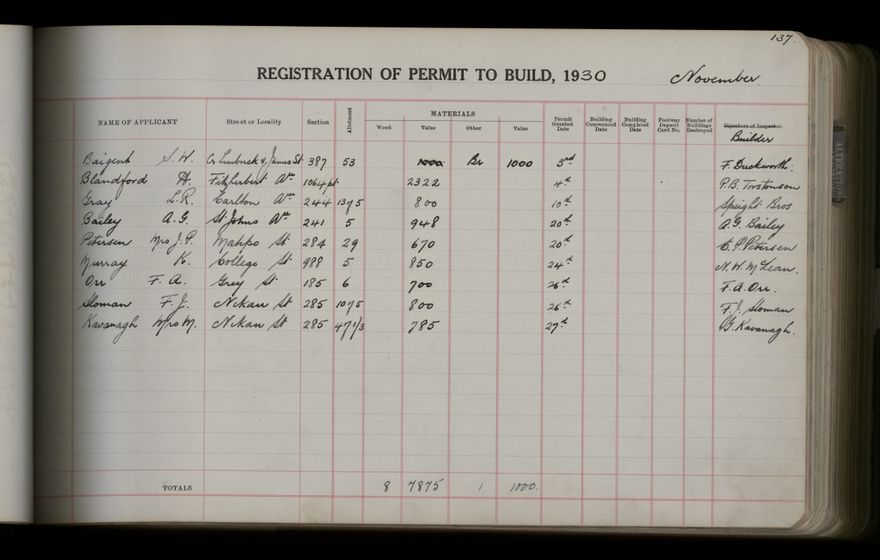 137.
REGISTRATION OF PERMIT TO BUILD, 1930 November
NAME OF APPLICANT Street or Locality Section Allotment MATERIALS Wood Value Other Value Permit Granted Date Building Commenced Date Building Completed Date Footway Deposit Card No. Number of Buildings Destroyed Signature of Inspector. Builder
Baigent S. W. Cr Limbrick & James St 387 53 1000 Br 1000 3rd F. Duckworth.
Blandford A. Fitzherbert Ave 1064 pt 2322 4th P.B. Torstonson
Gray L.R. Carlton Ave 244 13 of 5 800 10th Speight Bros
Bailey A.G. St Johns Ave 241 5 948 20th A.G. Bailey
Petersen Mrs J.P. Matipo St 284 29 670 20th P. Petersen
Murray K. College St 988 5 850 24th N.W. McLean.
Orr F. A. Grey St 185 6 700 26th F.A. Orr.
Sloman F. J. Nikau St 285 10 of 5 800 26th F.J. Sloman
Kavanagh Mrs M. Nikau St 285 47 1/3 785 27th G. Kavanagh.
TOTALS 8 7875 1 1000.